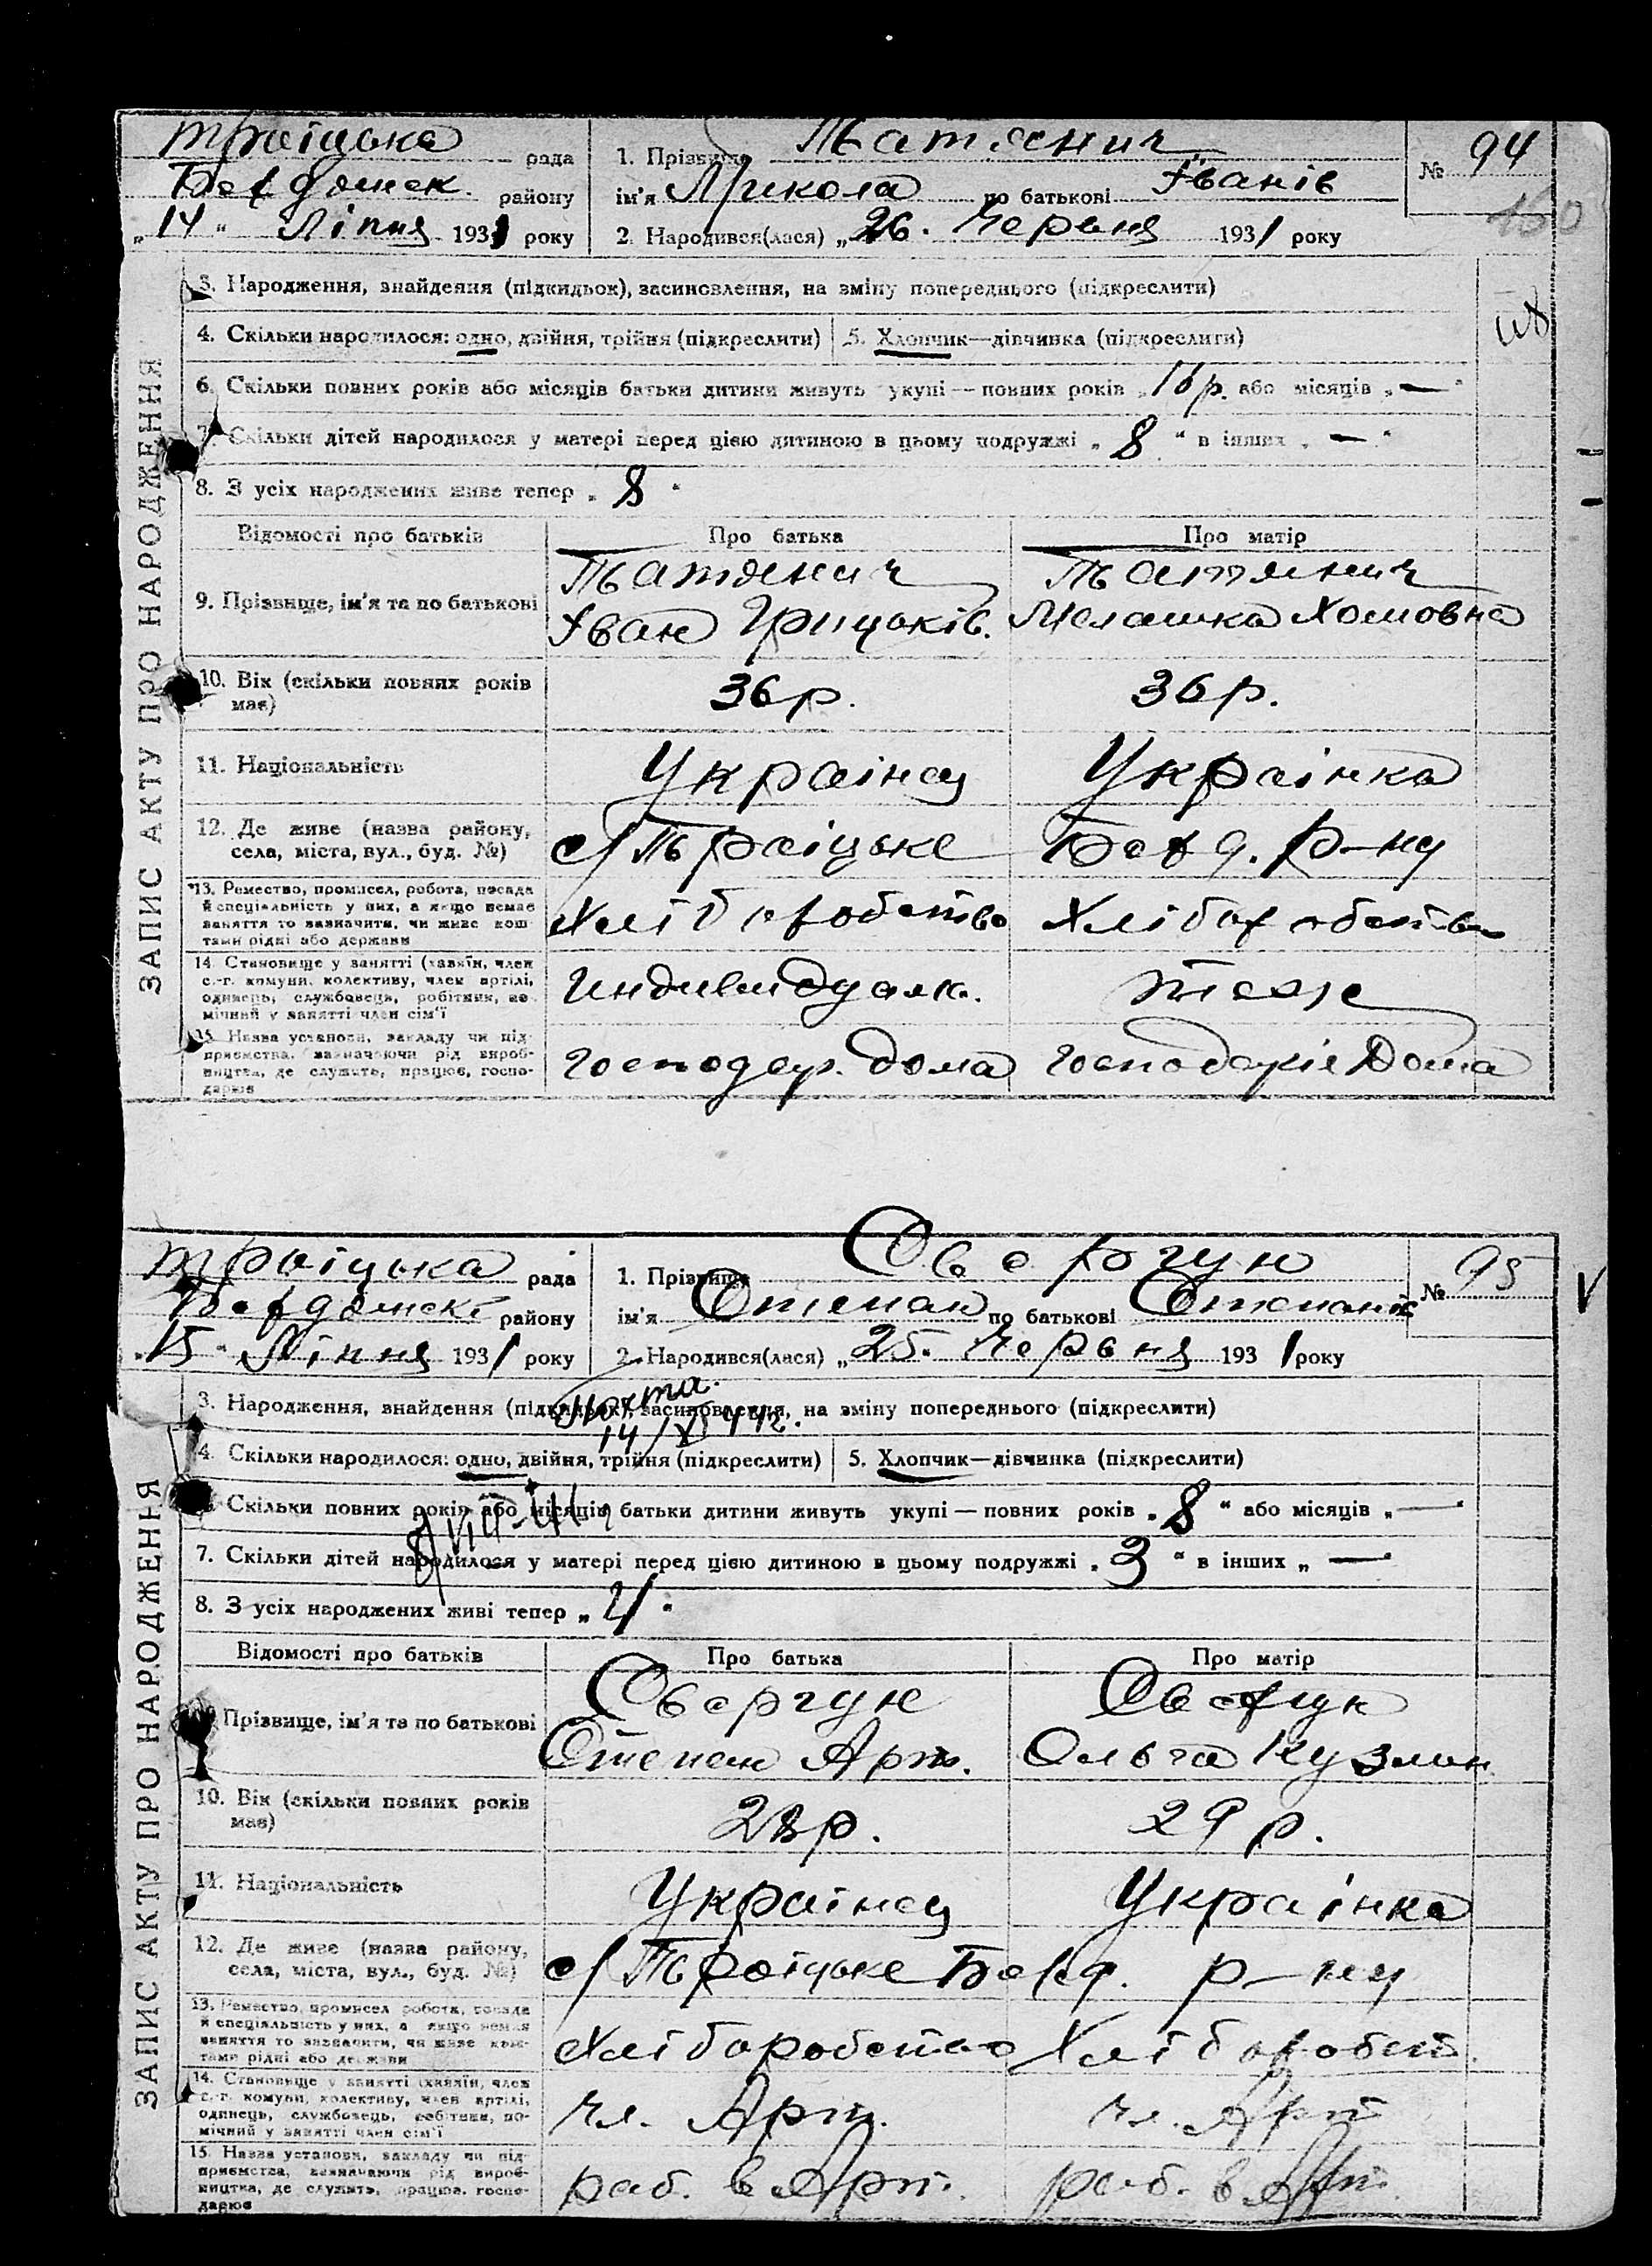 Троїцька рада
Бердянск. району
„14" Ліпня 1931 року
1. Прізвище Татянич
ім'я Микола по батькові Іванів
2. Народився(лася) „26. Червня 1931 року
№ 94
160
ЗАПИС АКТУ ПРО НАРОДЖЕННЯ
3. Народження, знайдення (підкидьок), засиновлення, на зміну попереднього (підкреслити)
4. Скільки народилося: одно, двійня, трійня (підкреслити) 5. Хлопчик—дівчинка (підкреслити)
6. Скільки повних років або місяців батьки дитини живуть укупі — повних років „16 р. або місяців „—"
7. Скільки дітей народилося у матері перед цією дитиною в цьому подружжі „8" в інших „—"
8. З усіх народжених живе тепер „8"
Відомості про батьків Про батька Про матір
9. Прізвище, ім'я та по батькові
Татянич
Іван Грицьків.
Татянич
Мелашка Хомовна
10. Вік (скільки повних років має) 36 р. 36 р.
11. Національність Українец Українка
12. Де живе (назва району, села, міста, вул., буд. №) с/Троїцьке Берд. р-ну
13. Ремество, промисел, робота, посада й спеціяльність у них, а якщо немає заняття то зазначити, чи живе коштами рідні або держави
Хліборобство Хліборобство
14. Становище у занятті (хазяїн, член с.-г. комуни, колективу, член артілі, одинець, службовець, робітник, помічний у занятті член сім'ї
Индивидуалн. тоже
15. Назва установи, закладу чи підприємства, зазначаючи рід виробництва, де служить, працює, господарює
господар. дома господарує Дома
Троїцька рада
Бердянскі району
„15" Ліпня 1931 року
1. Прізвище Свергун
ім'я Степан по батькові Степанів
2. Народився(лася) „25. Червня 1931 року
№ 95
ЗАПИС АКТУ ПРО НАРОДЖЕННЯ
3. Народження, знайдення (підкидьок), засиновлення, на зміну попереднього (підкреслити)
4. Скільки народилося: одно, двійня, трійня (підкреслити) 5. Хлопчик—дівчинка (підкреслити)
Скільки повних років або місяців батьки дитини живуть укупі — повних років „8" або місяців „—"
7. Скільки дітей народилося у матері перед цією дитиною в цьому подружжі „3" в інших „—"
8. З усіх народжених живі тепер „4"
Відомості про батьків Про батька Про матір
Прізвище, ім'я та по батькові
Свергун
Степан Арт.
Свергун
Ольга Кузмин.
10. Вік (скільки повних років має) 28 р. 29 р.
11. Національність Українец Українка
12. Де живе (назва району, села, міста, вул., буд. №) с/Троїцьке Берд. р-ну
13. Ремество, промисел робота, посада й спеціяльність у них, а якщо немає заняття то зазначити, чи живе коштами рідні або держави
Хліборобство Хліборобст.
14. Становище у занятті (хазяїн, член с.-г. комуни, колективу, член артілі, одинець, службовець, робітник, помічний у занятті член сім'ї
чл. Арт. чл. Арт
15. Назва установи, закладу чи підприємства, зазначаючи рід виробництва, де служить, працює, господарює
раб. в Арт. раб. в Арт.